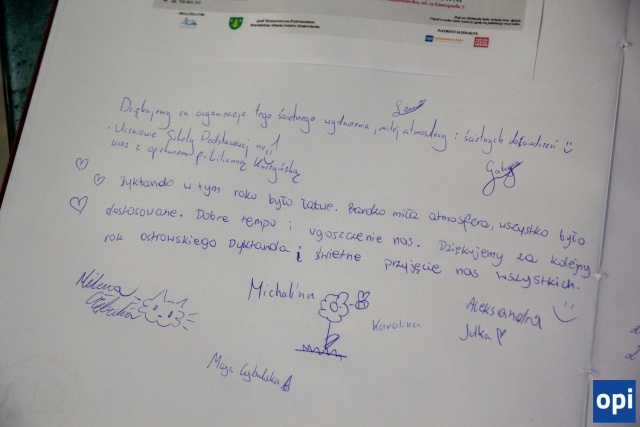 ul. 11 Listopada 7
ORGANIZATOR:
pod Honorowym Patronatem
PATRONI MEDIALNI:
Dziękujemy za organizację tego świetnego wydarzenia, miłej atmosfery i świetnych doświadczeń
- Uczniowie Szkoły Podstawowej nr 1
wraz z opiekunem p. Lilianną
Gabryś
Dyktando w tym roku było łatwe. Bardzo miła atmosfera, wszystko było
dostosowane. Dobre tempo i ugoszczenie nas. Dziękujemy za kolejny
rok ostrowskiego Dyktanda i świetne przyjęcie nas wszystkich.
Milena
Michalina
Karolina
Aleksandra
Julka
Maja Cybulska
opi